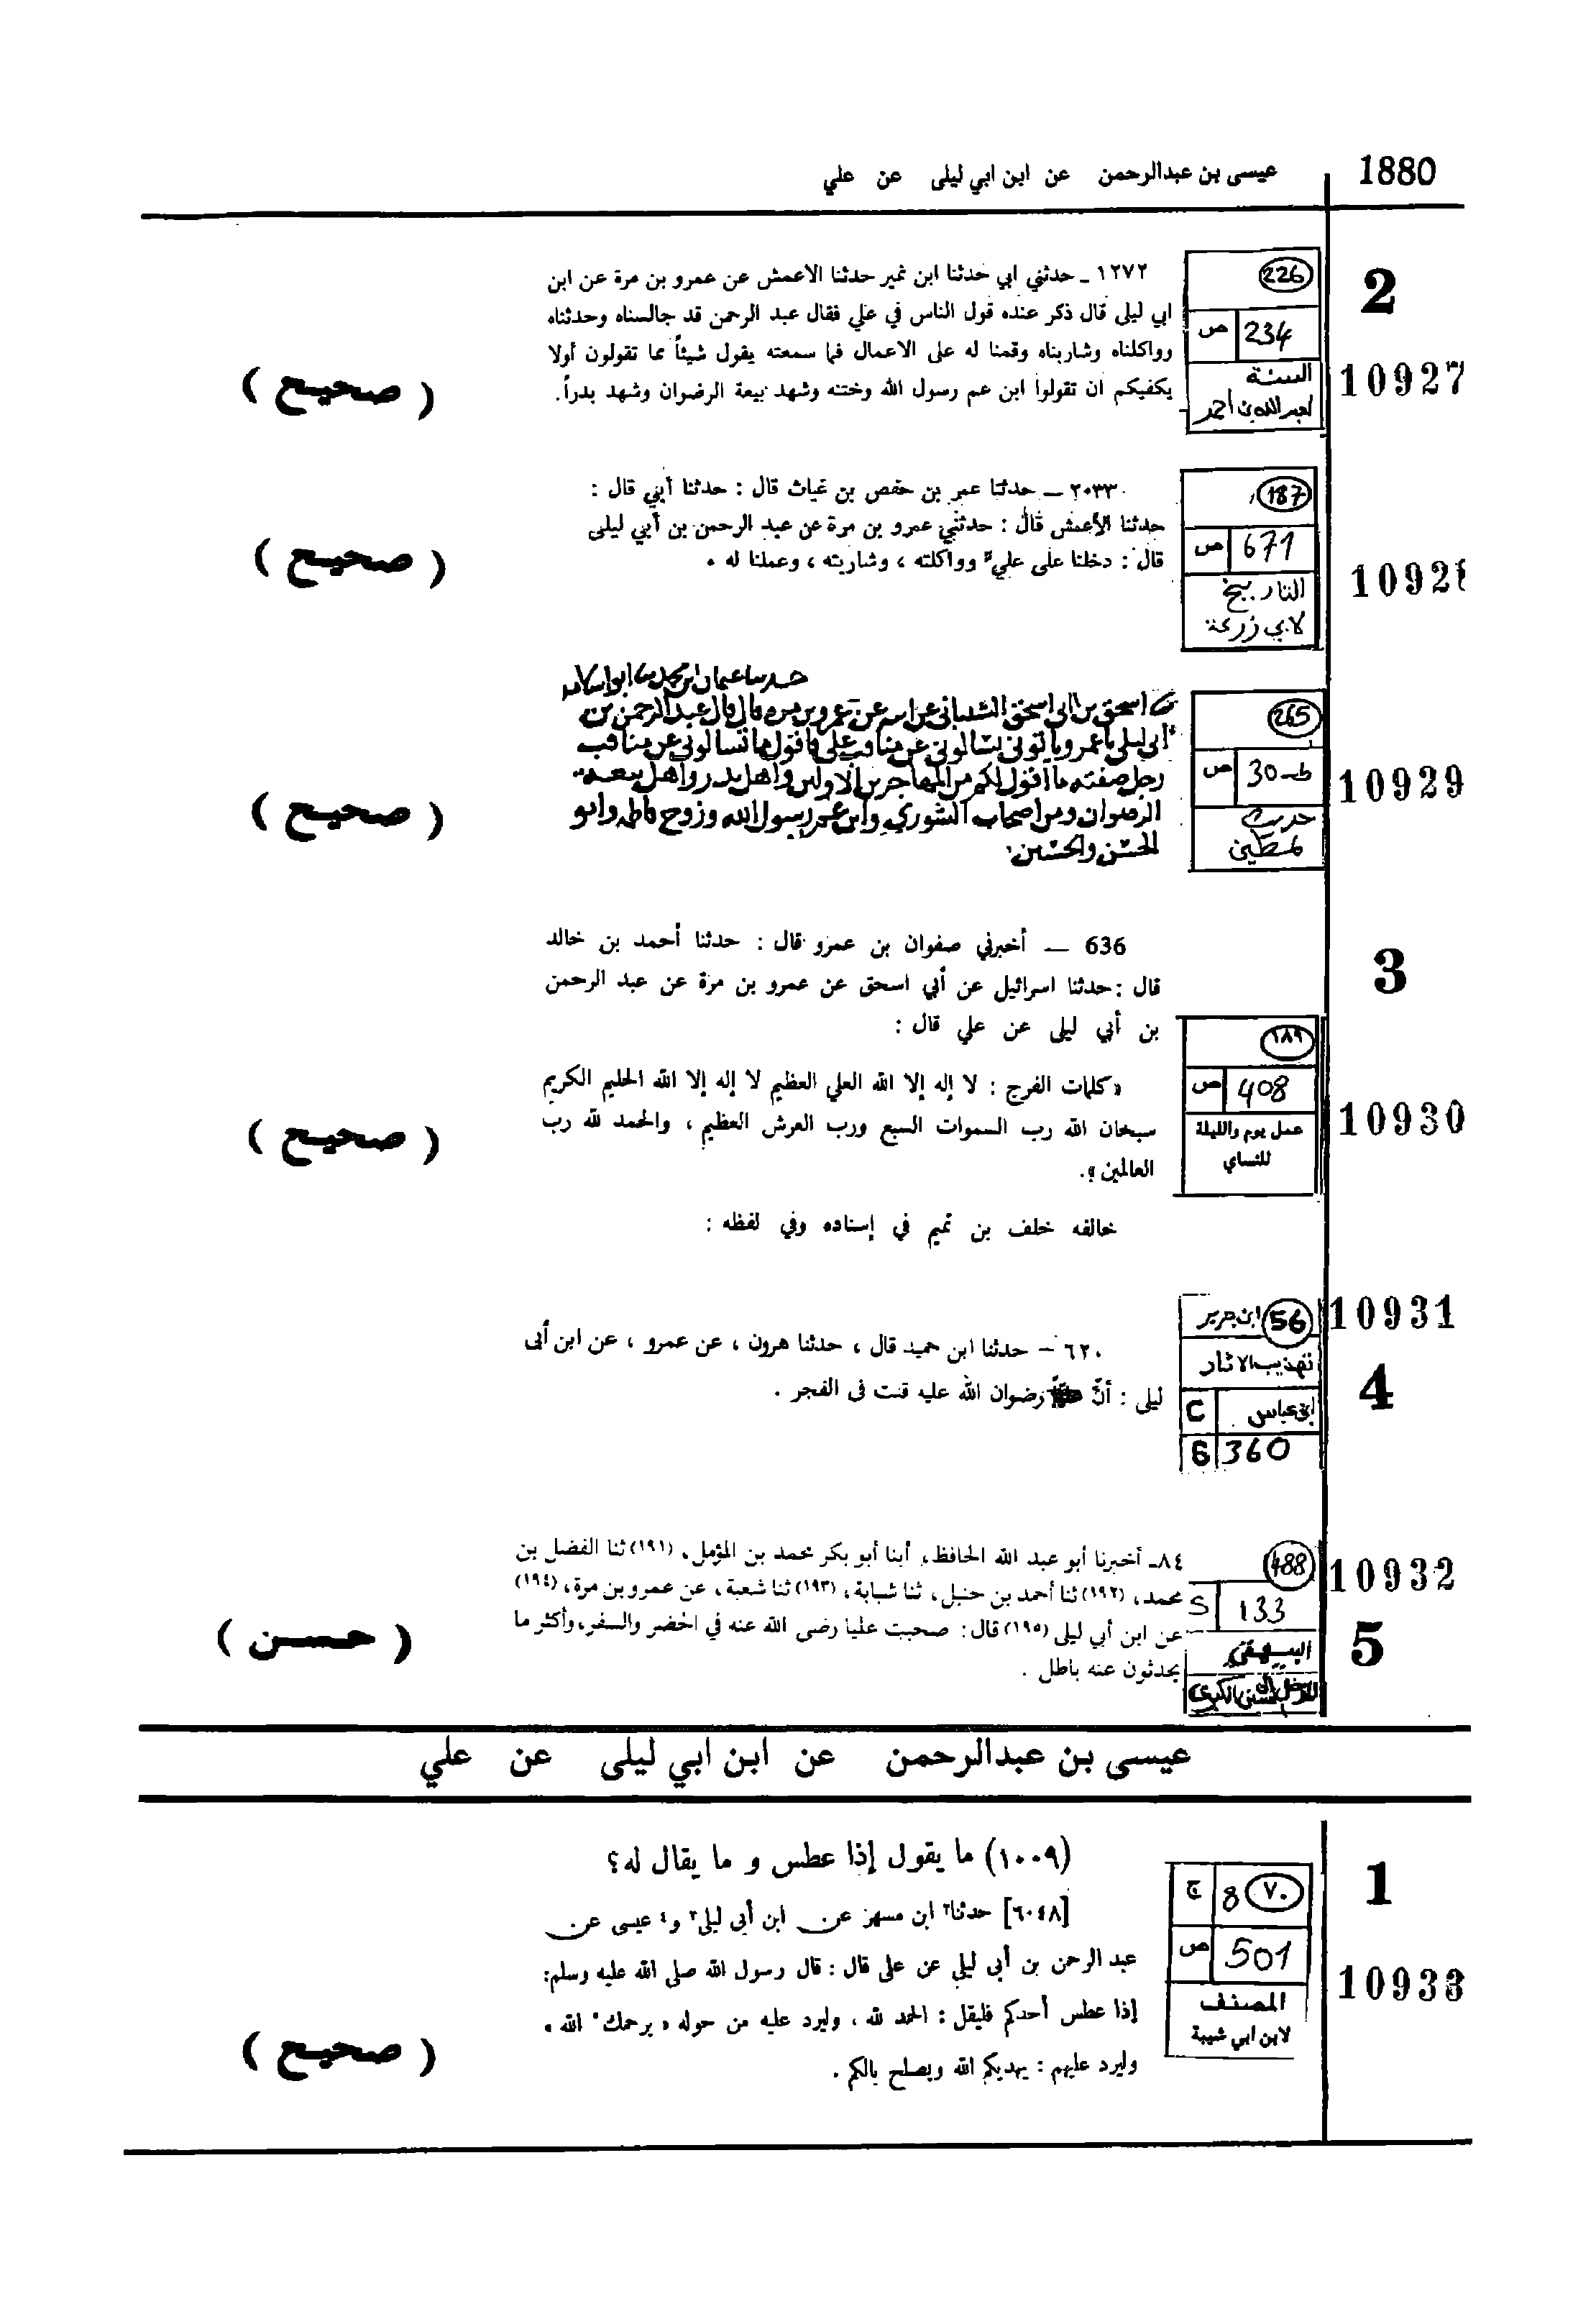 1880
عيسى بن عبدالرحمن عن ابن ابي ليلى عن علي
2
226
234 ص
السنة
لعبد الله بن احمد
10927
١٢٧٢ ـ حدثني ابي حدثنا ابن نمير حدثنا الاعمش عن عمرو بن مرة عن ابن
ابي ليلى قال ذكر عنده قول الناس في علي فقال عبد الرحمن قد جالسناه وحدثناه
وواكلناه وشاربناه وقمنا له على الاعمال فما سمعته يقول شيئاً مما تقولون أولا
يكفيكم ان تقولوا ابن عم رسول الله وختنه وشهد بيعة الرضوان وشهد بدراً.
( صحيح )
187
671 ص
التاريخ
لابي زرعة
1092
٢٠٣٣ ــ حدثنا عمر بن حفص بن غياث قال : حدثنا أبي قال :
حدثنا الأعمش قال : حدثني عمرو بن مرة عن عبد الرحمن بن أبي ليلى
قال : دخلنا على علي وواكلته ، وشاربته ، وعملنا له .
( صحيح )
265
30-ط ص
حديث
10929
اسحق بن ابى اسحق الشيبانى عن ابيه عن عمرو بن مره قال قال عبد الرحمن بن
أبى ليلى يا عمرو ياتونى يسالونى عن مناقب على فاقول ما تسالونى عن مناقب
رجل صفته ما اقول لكم من المهاجرين الاولين واهل بدر واهل بيعه
الرضوان ومن اصحاب الشورى وابن عم رسول الله وزوج فاطمه وابو
الحسن والحسين
( صحيح )
3
636 — أخبرني صفوان بن عمرو قال : حدثنا أحمد بن خالد
قال : حدثنا اسرائيل عن أبي اسحق عن عمرو بن مرة عن عبد الرحمن
بن أبي ليلى عن علي قال :
١٨٩
408 ص
عمل يوم والليلة
للنساي
10930
«كلمات الفرج : لا إله إلا الله العلي العظيم لا إله إلا الله الحليم الكريم
سبحان الله رب السموات السبع ورب العرش العظيم ، والحمد لله رب
العالمين».
( صحيح )
خالفه خلف بن تميم في إسناده وفي لفظه :
10931
56 ابن جرير
تهذيب الاثار
ابن عباس C
360
4
٦٢٠ - حدثنا ابن حميد قال ، حدثنا هرون ، عن عمرو ، عن ابن أبى
ليلى : أنّ رضوان الله عليه قنت فى الفجر .
10932
488
133 S
البيهقي
المدخل إلى السنن الكبرى
5
٨٤ـ أخبرنا أبو عبد الله الحافظ، أبنا أبو بكر محمد بن المؤمل، (١٩١) ثنا الفضل بن
محمد، (١٩٢) ثنا أحمد بن حنبل، ثنا شبابة، (١٩٣) ثنا شعبة، عن عمرو بن مرة، (١٩٤)
عن ابن أبي ليلى (١٩٥) قال: صحبت عليا رضى الله عنه في الحضر والسفر، وأكثر ما
يحدثون عنه باطل .
( حسن )
عيسى بن عبدالرحمن عن ابن ابي ليلى عن علي
1
(١٠٠٩) ما يقول إذا عطس و ما يقال له؟
٧٠ 8 ج
501 ص
المصنف
لابن ابي شيبة
10933
[٦٠٤٨] حدثنا٢ ابن مسهر عن ابن أبي ليلى٣ و٤ عيسى عن
عبد الرحمن بن أبى ليلى عن على قال : قال رسول الله صلى الله عليه وسلم:
إذا عطس أحدكم فليقل : الحمد لله ، وليرد عليه من حوله « يرحمك الله »
وليرد عليهم : يهديكم الله ويصلح بالكم .
( صحيح )